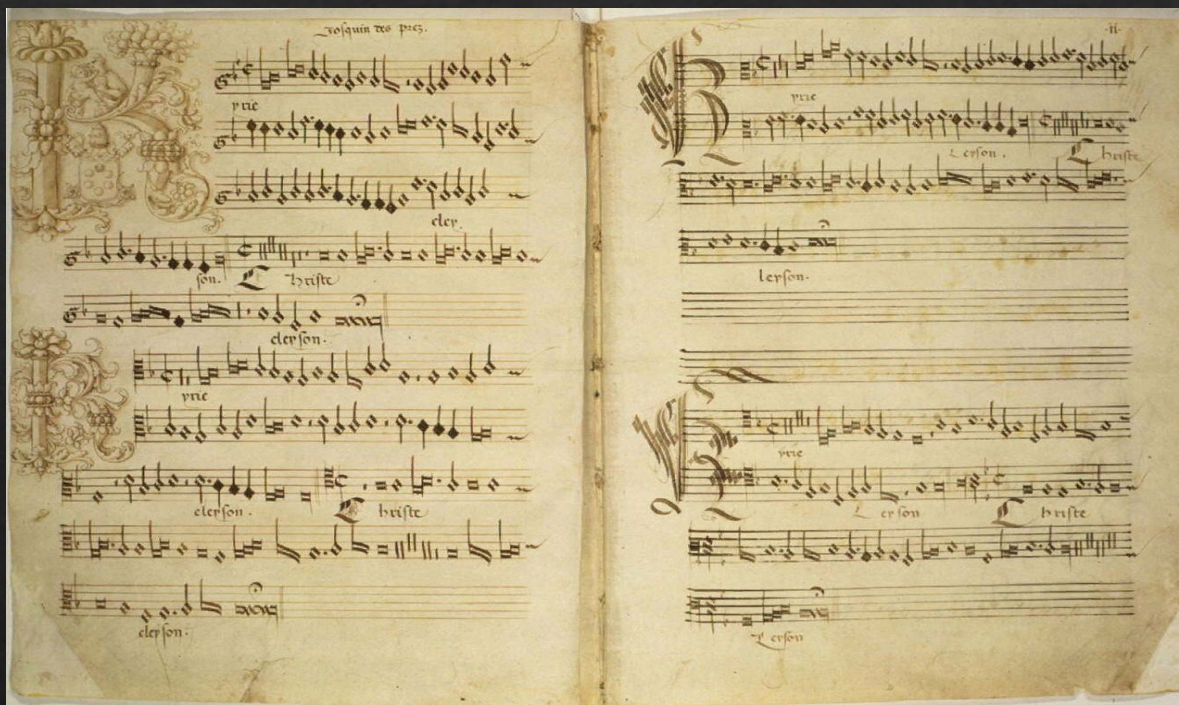 Josquin des prez.
yrie
eley.
son. Christe
eleyson.
yrie
eleyson. Christe
eleyson.
.ii.
yrie
Leyson. Christe
leyson.
yrie
Leyson Christe
Leyson